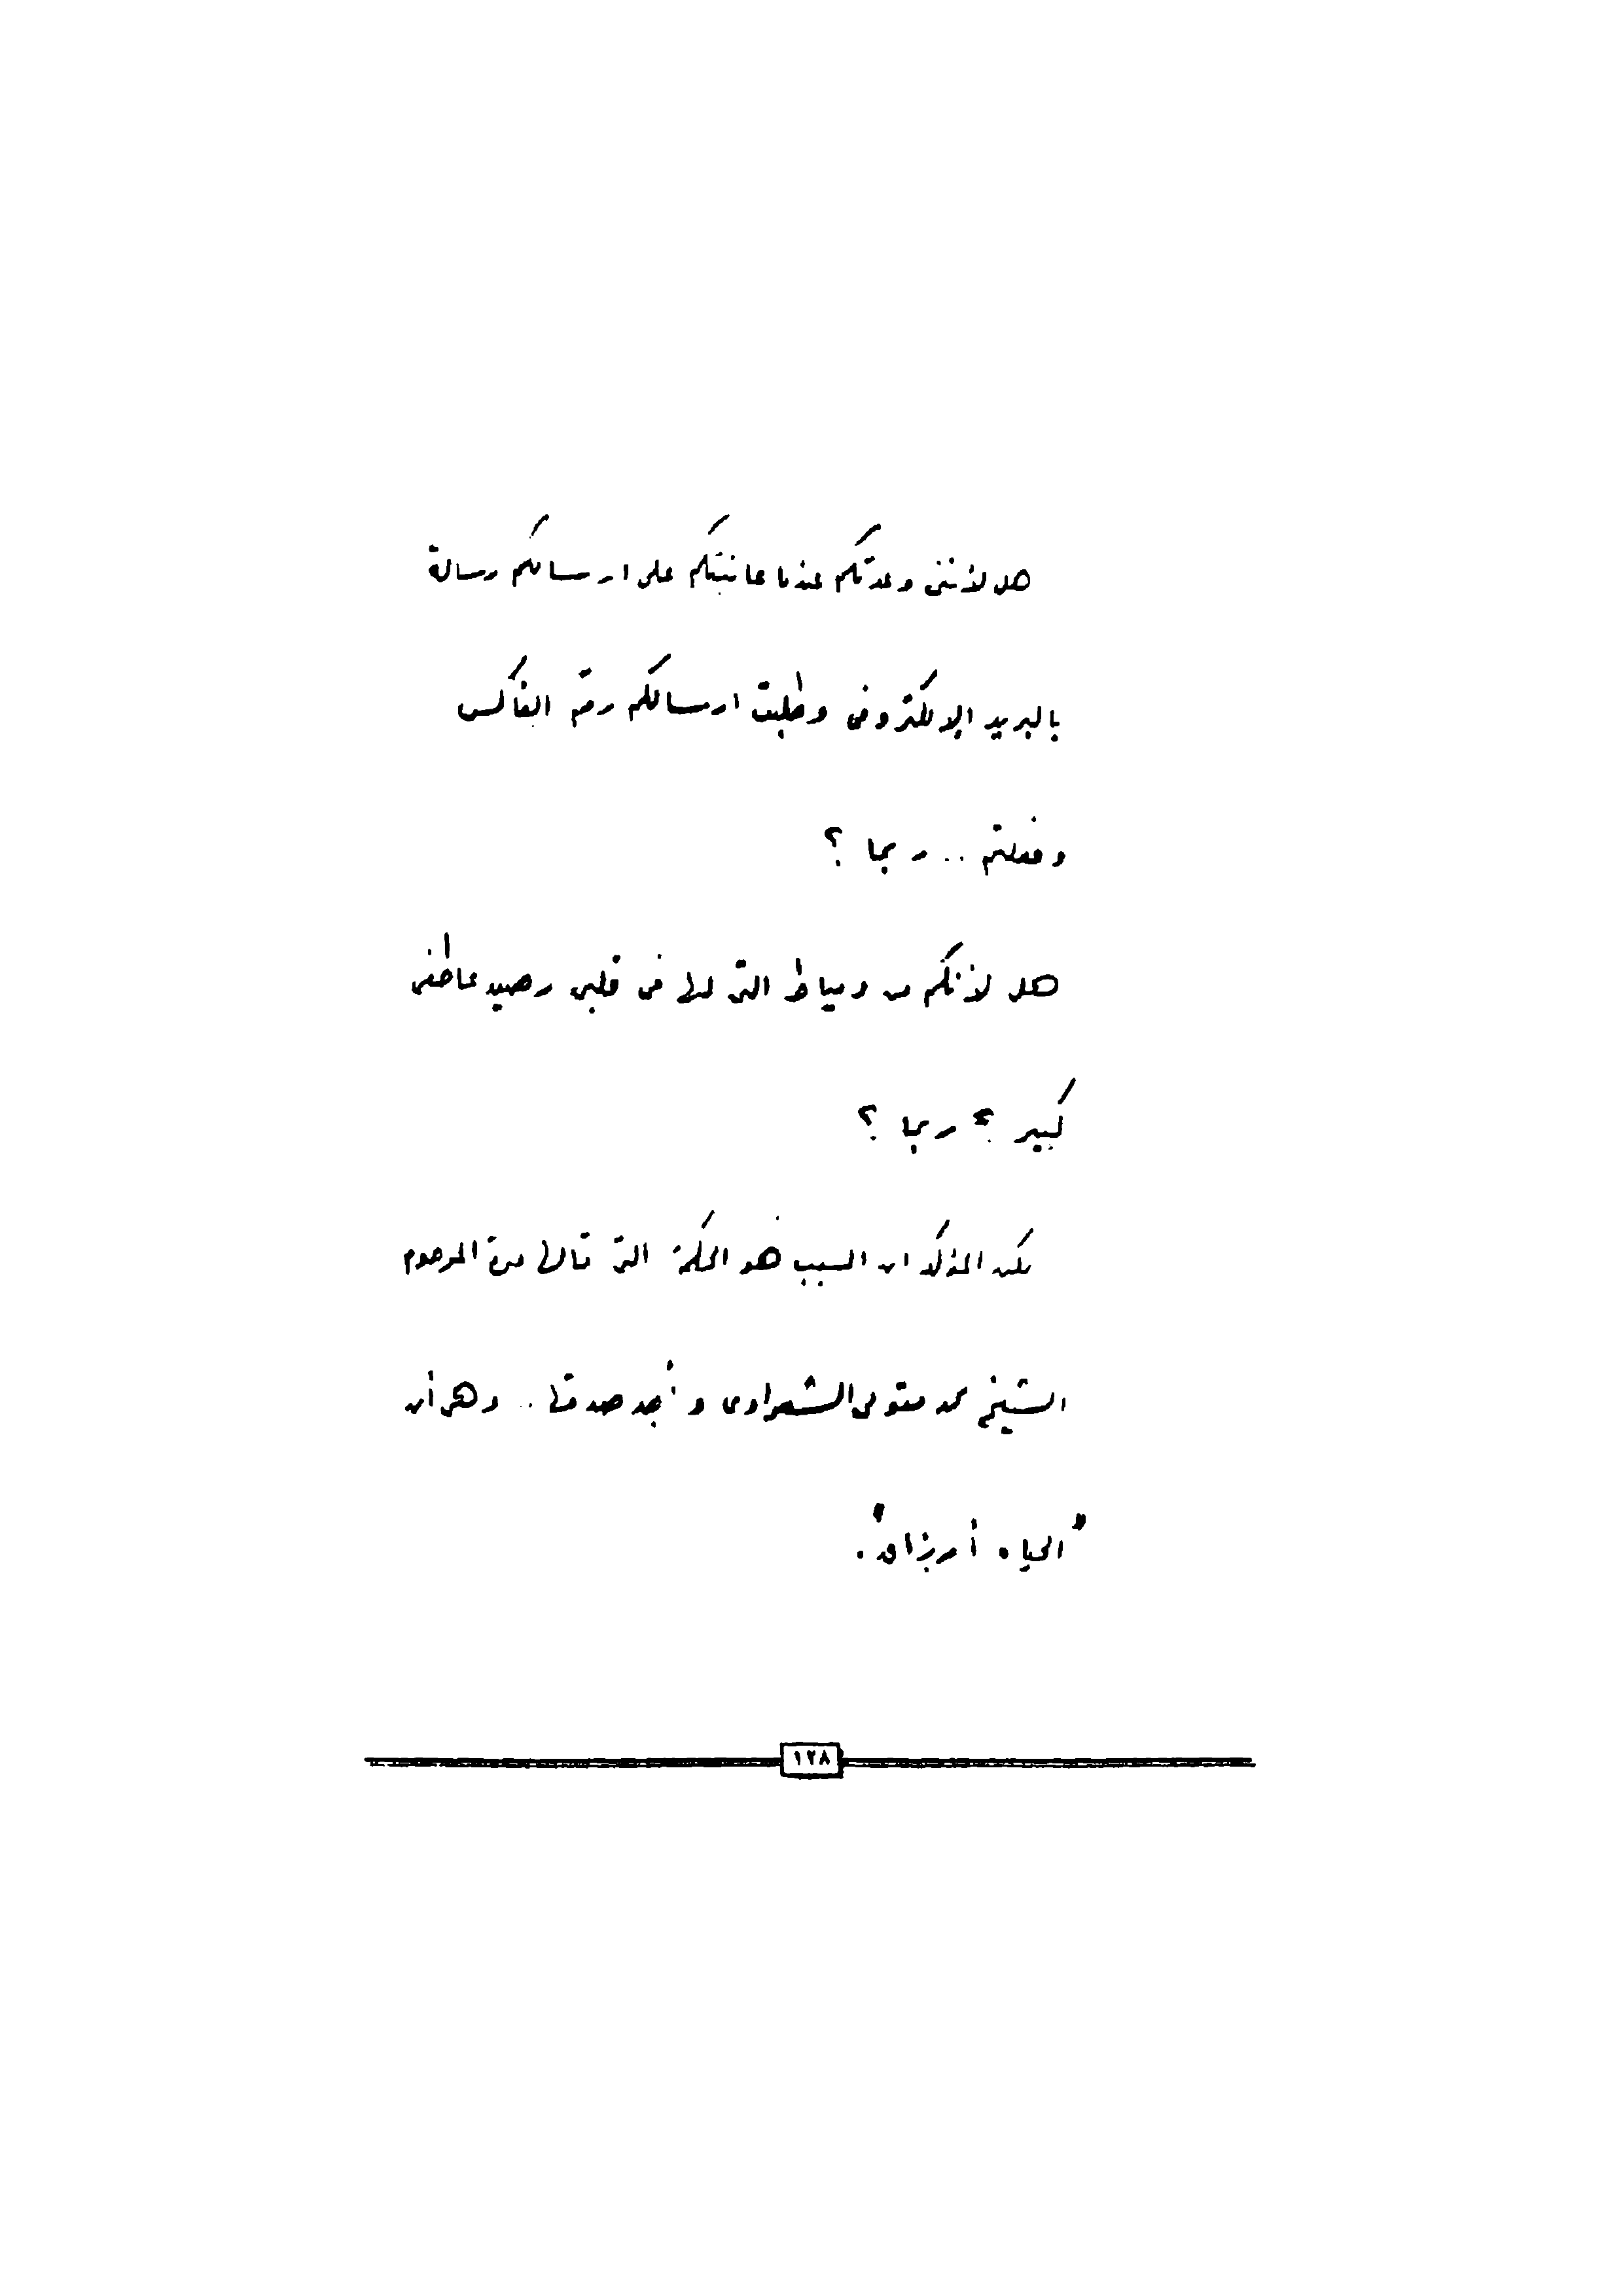 هل لأننى وعدتكم عندما عاتبتكم على ارسالكم رسالة
بالبريد الإلكترونى وطلبت ارسالكم رقم الفاكس
وفعلتم .. ربما ؟
هل لأنكم من دمياط التى لها فى قلبى رصيد عاطفى
كبير ؟ ربما ؟
لكن المؤكد ان السبب هو الحكمة التى قالها مرة المرحوم
الشيخ محمد متولى الشعراوى ونجد صدقها .. وهى أن
"الحياه أرزاق".
١٢٨